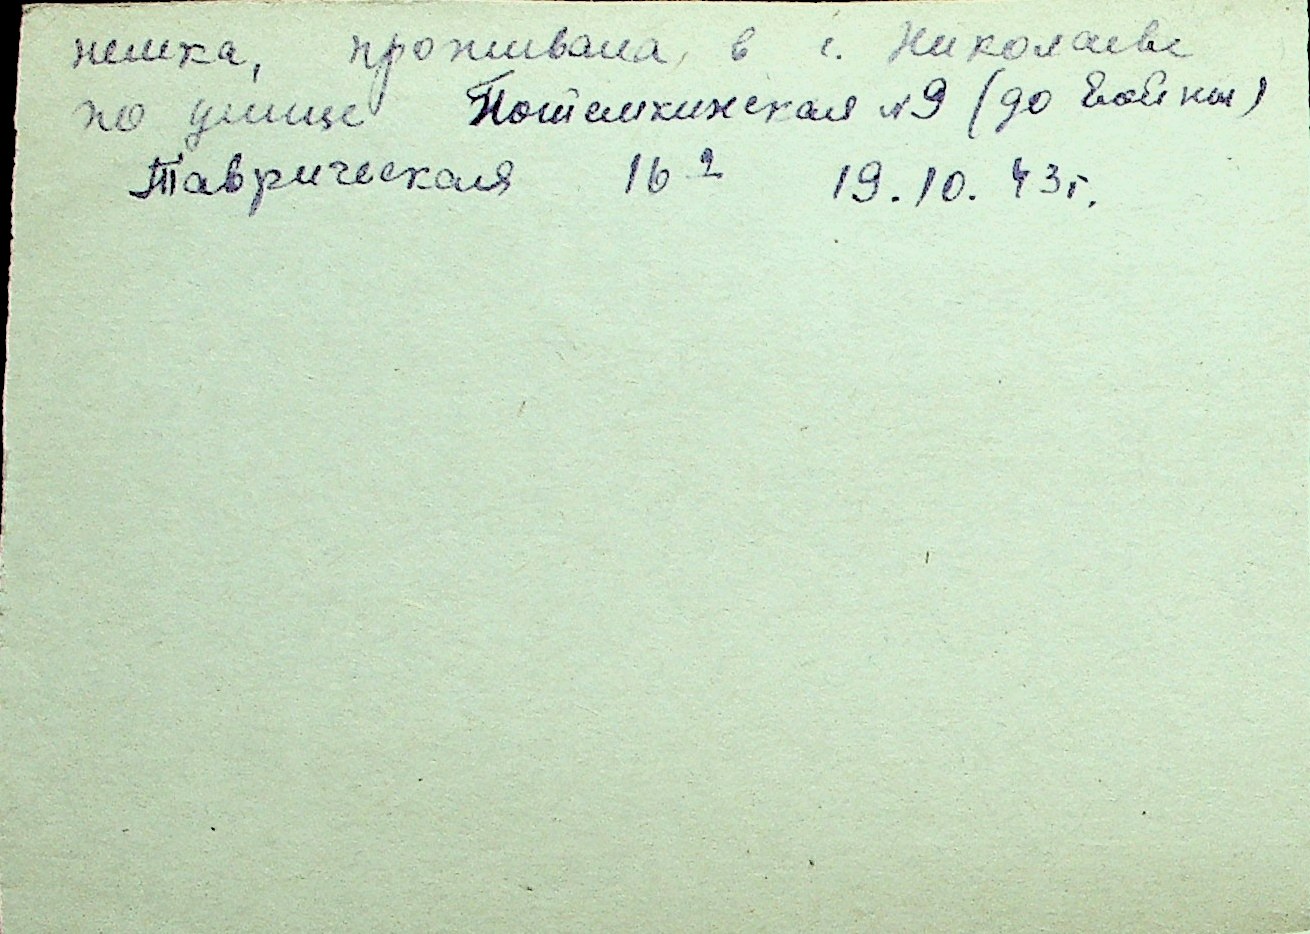 немка, проживала в г. Николаеве
по улице Потемкинская №9 (до войны)
Таврическая 16² 19.10.43г.